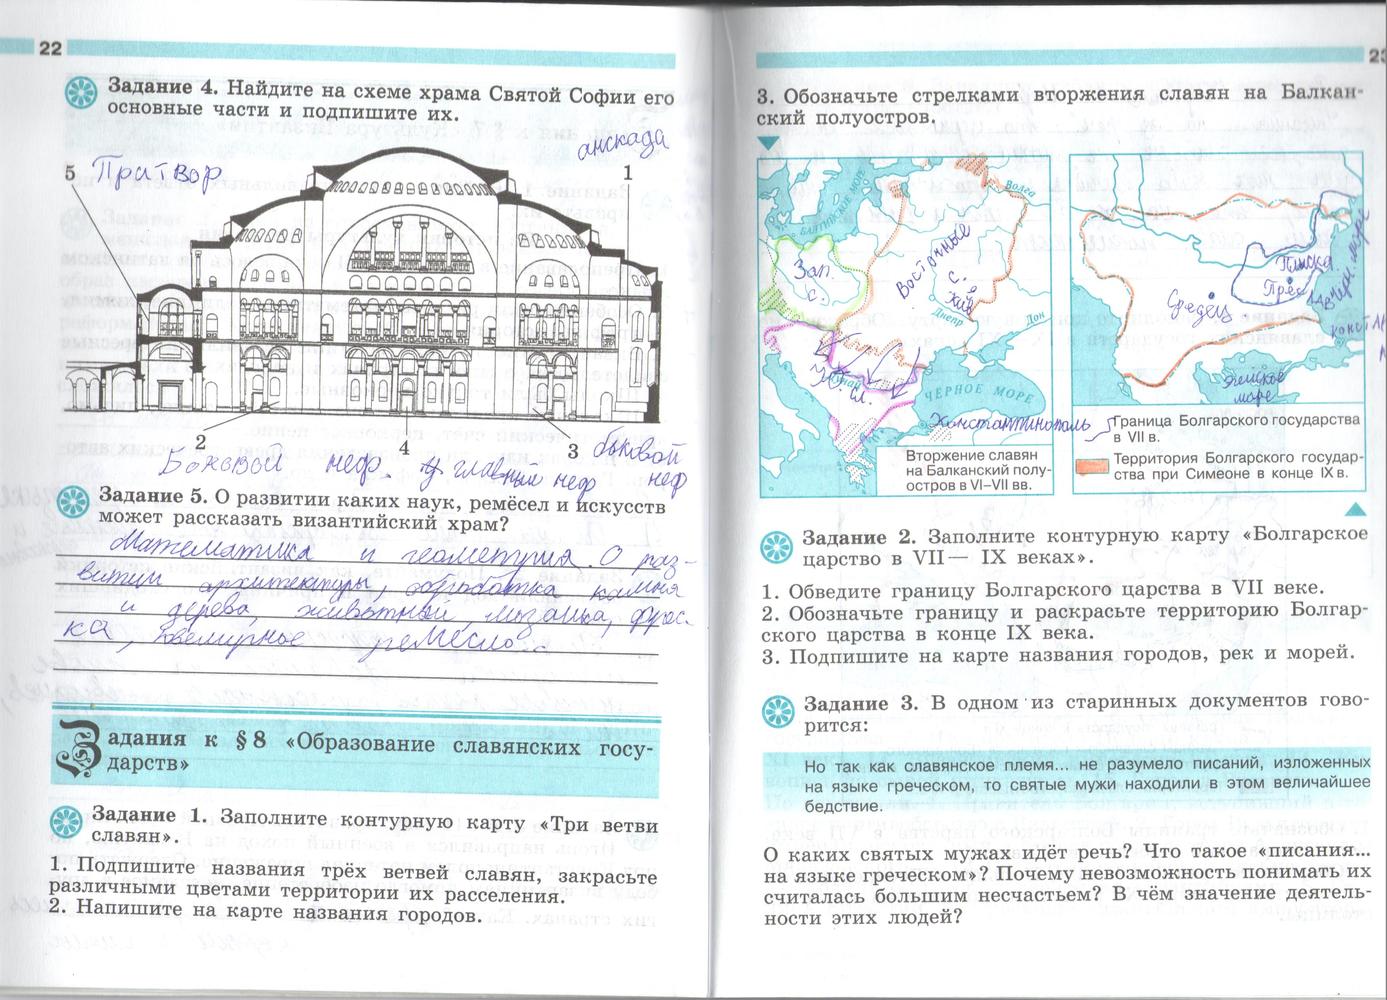 22
Задание 4. Найдите на схеме храма Святой Софии его
основные части и подпишите их.
анскада
5 Притвор
1
2
4
3
Боковой неф. главный неф
боковой
неф
Задание 5. О развитии каких наук, ремёсел и искусств
может рассказать византийский храм?
Математика и геометрия. О раз-
витии архитектуры, обработка камня
и дерева, животный, мозаика, фрес-
ка, ювелирное ремесло...
Задания к § 8 «Образование славянских госу-
дарств»
Задание 1. Заполните контурную карту «Три ветви
славян».
1. Подпишите названия трёх ветвей славян, закрасьте
различными цветами территории их расселения.
2. Напишите на карте названия городов.
23
3. Обозначьте стрелками вторжения славян на Балкан-
ский полуостров.
БАЛТИЙСКОЕ МОРЕ
Волга
Зап.
с.
Восточные
с.
Киев
Днепр
Дон
Дунай
Ю
сл.
ЧЕРНОЕ МОРЕ
Константинополь
Вторжение славян
на Балканский полу-
остров в VI–VII вв.
Плиска
Прес
Средец
Черн. море
конст
Эгейское
море
Граница Болгарского государства
в VII в.
Территория Болгарского государ-
ства при Симеоне в конце IX в.
Задание 2. Заполните контурную карту «Болгарское
царство в VII — IX веках».
1. Обведите границу Болгарского царства в VII веке.
2. Обозначьте границу и раскрасьте территорию Болгар-
ского царства в конце IX века.
3. Подпишите на карте названия городов, рек и морей.
Задание 3. В одном из старинных документов гово-
рится:
Но так как славянское племя... не разумело писаний, изложенных
на языке греческом, то святые мужи находили в этом величайшее
бедствие.
О каких святых мужах идёт речь? Что такое «писания...
на языке греческом»? Почему невозможность понимать их
считалась большим несчастьем? В чём значение деятель-
ности этих людей?